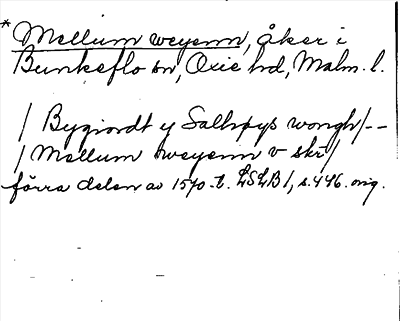 * Mellum weyenn, åker i
Bunkeflo sn, Oxie hd, Malm. l.
/ Bygiordt y Salhøys wongh/--
/ Mellum weyenn v skr/
förra delen av 1570-t. LSLB 1, s. 446. orig.